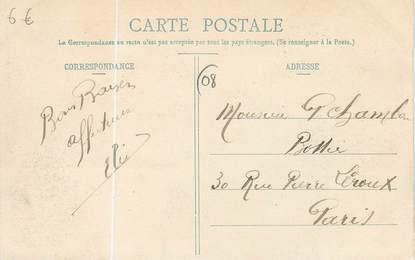 6 €
CARTE POSTALE
La Correspondance au recto n'est pas acceptée par tous les pays étrangers. (Se renseigner à la Poste.)
CORRESPONDANCE
Bons Baisers
ADRESSE
08
Monsieur
30 Rue Pierre Leroux
Paris